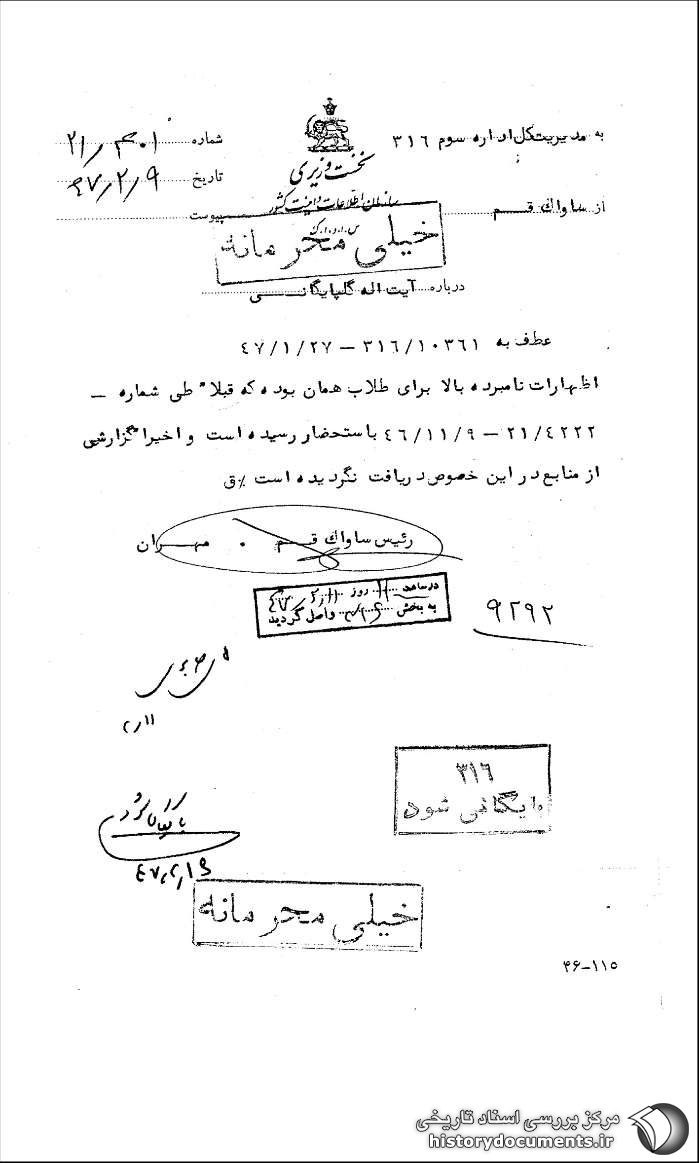 به مدیریت کل اداره سوم ۳۱۶
شماره ۲۱/۴۰۱
نخست وزیری
تاریخ ۴۷/۲/۹
سازمان اطلاعات و امنیت کشور
از ساواک قم
پیوست
س.ا.و.ا.ک
خیلی محرمانه
درباره آیت اله گلپایگانی
عطف به ۳۱۶/۱۰۳۶۱ – ۴۷/۱/۲۷
اظهارات نامبرده بالا برای طلاب همان بوده که قبلاً طی شماره –
۲۱/۴۲۲۲ – ۴۶/۱۱/۹ باستحضار رسیده است و اخیرا گزارشی
از منابع در این خصوص دریافت نگردیده است ٪ق
رئیس ساواک قم . مهران
در ساعت ۱۱ روز ۴۷/۲/۱۱
به بخش ۳۱۶ واصل گردید
۹۲۹۲
۲/۱۱
۳۱۶
بایگانی شود
بایگانی شود
۴۷/۲/۱۶
خیلی محرمانه
۳۶-۱۱۵
مرکز بررسی اسناد تاریخی
historydocuments.ir